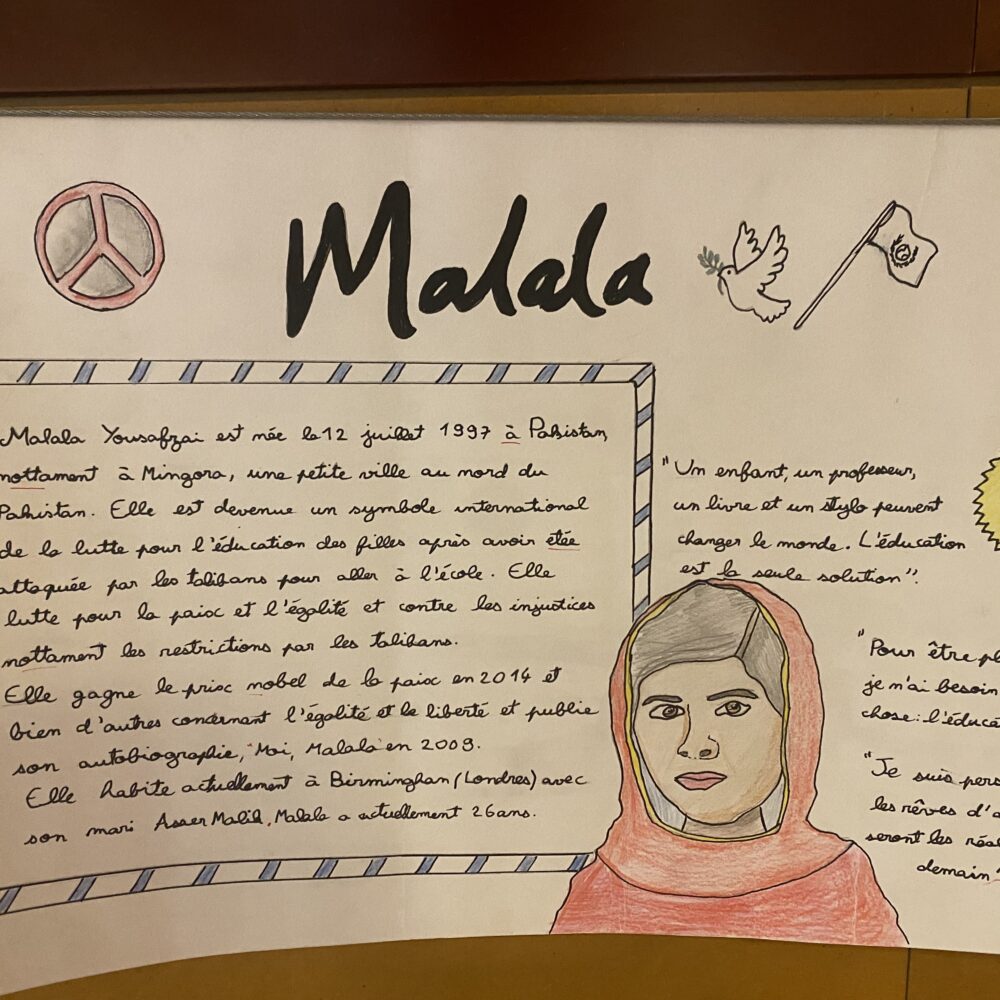 Malala
Malala Yousafzai est née le 12 juillet 1997 à Pakistan,
nottament à Mingora, une petite ville au nord du
Pakistan. Elle est devenue un symbole international
de la lutte pour l'éducation des filles après avoir étée
attaquée par les talibans pour aller à l'école. Elle
lutte pour la paix et l'égalité et contre les injustices
nottament les restrictions par les talibans.
Elle gagne le prix nobel de la paix en 2014 et
bien d'autres concernant l'égalité et la liberté et publie
son autobiographie, "Moi, Malala" en 2009.
Elle habite actuellement à Birminghan (Londres) avec
son mari Asser Malik. Malala a actuellement 26 ans.
"Un enfant, un professeur,
un livre et un stylo peuvent
changer le monde. L'éducation
est la seule solution".
"Pour être pl
je n'ai besoin
chose: l'éduca
"Je suis pers
les rêves d'a
seront les réal
demain"